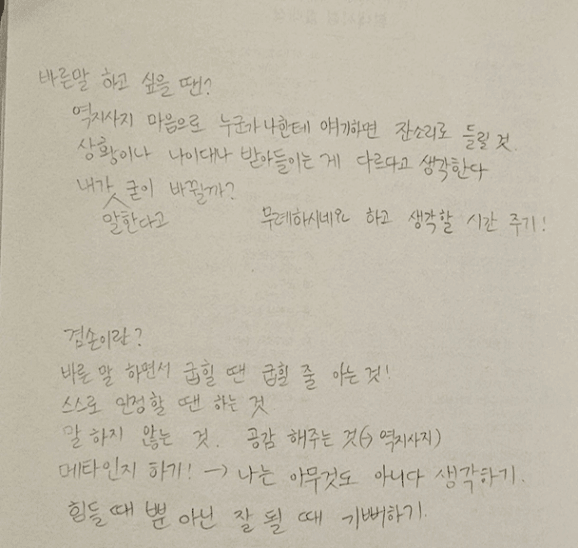 바른말 하고 싶을 땐?
역지사지 마음으로 누군가 나한테 얘기하면 잔소리로 들릴 것.
상황이나 나이대나 받아들이는 게 다르다고 생각한다
내가 굳이 바뀔까?
말한다고 무례하시네요 하고 생각할 시간 주기!
겸손이란?
바른 말 하면서 굽힐 땐 굽힐 줄 아는 것!
스스로 인정할 땐 하는 것
말 하지 않는 것. 공감 해주는 것(→ 역지사지)
메타인지 하기! → 나는 아무것도 아니다 생각하기.
힘들 때 뿐 아닌 잘 될 때 기뻐하기.